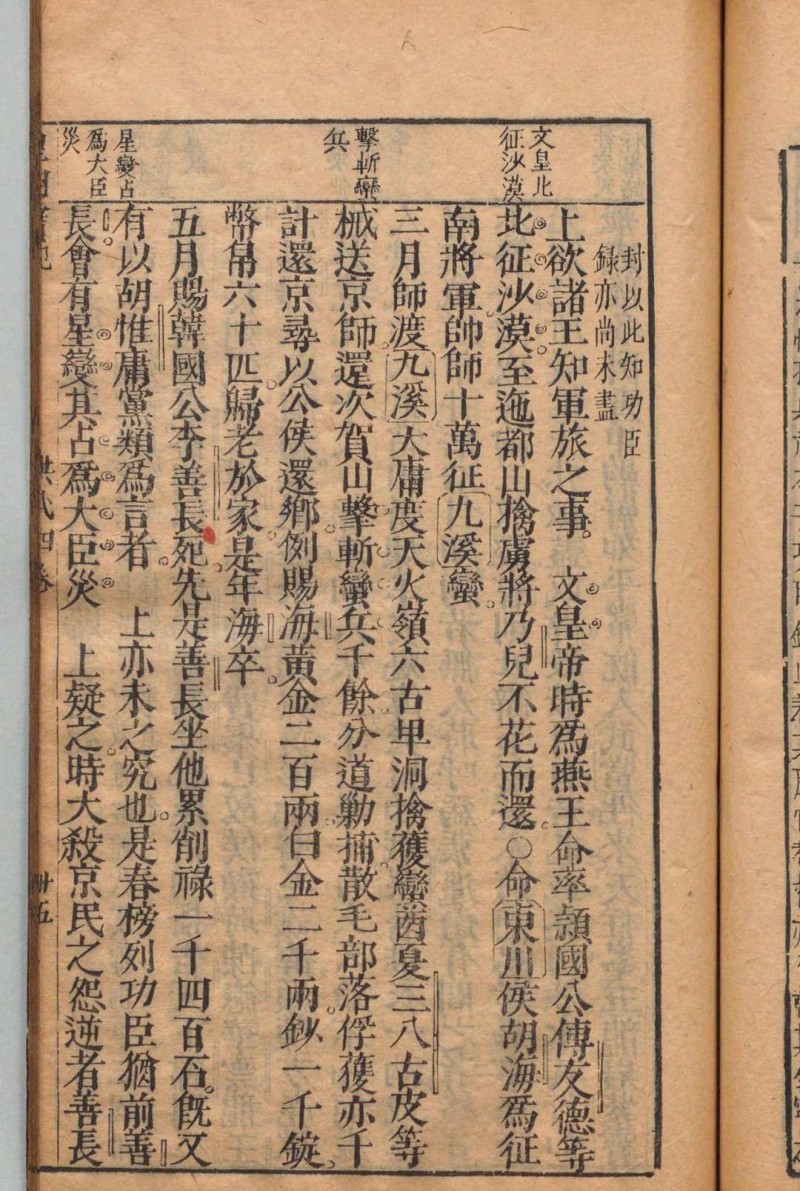 封以此知功臣
錄亦尚未盡
文皇北
征沙漠
擊斬蠻
兵
星變占
爲大臣
災
上欲諸王知軍旅之事。文皇帝時爲燕王命率頴國公傅友德等
北征沙漠至迤都山擒虜將乃兒不花而還○命東川侯胡海爲征
南將軍帥師十萬征九溪蠻
三月師渡九溪大庸度天火嶺六古卑洞擒獲蠻酋夏三八古皮等
械送京師還次賀山擊斬蠻兵千餘分道勦捕散毛部落俘獲亦千
計還京尋以公侯還鄉例賜海黃金二百兩白金二千兩鈔一千錠
幣帛六十匹歸老於家是年海卒
五月賜韓國公李善長死先是善長坐他累削祿一千四百石旣又
有以胡惟庸黨類爲言者 上亦未之究也是春榜列功臣猶前善
長會有星變其占爲大臣災 上疑之時大殺京民之怨逆者善長
洪武四卷 卌五